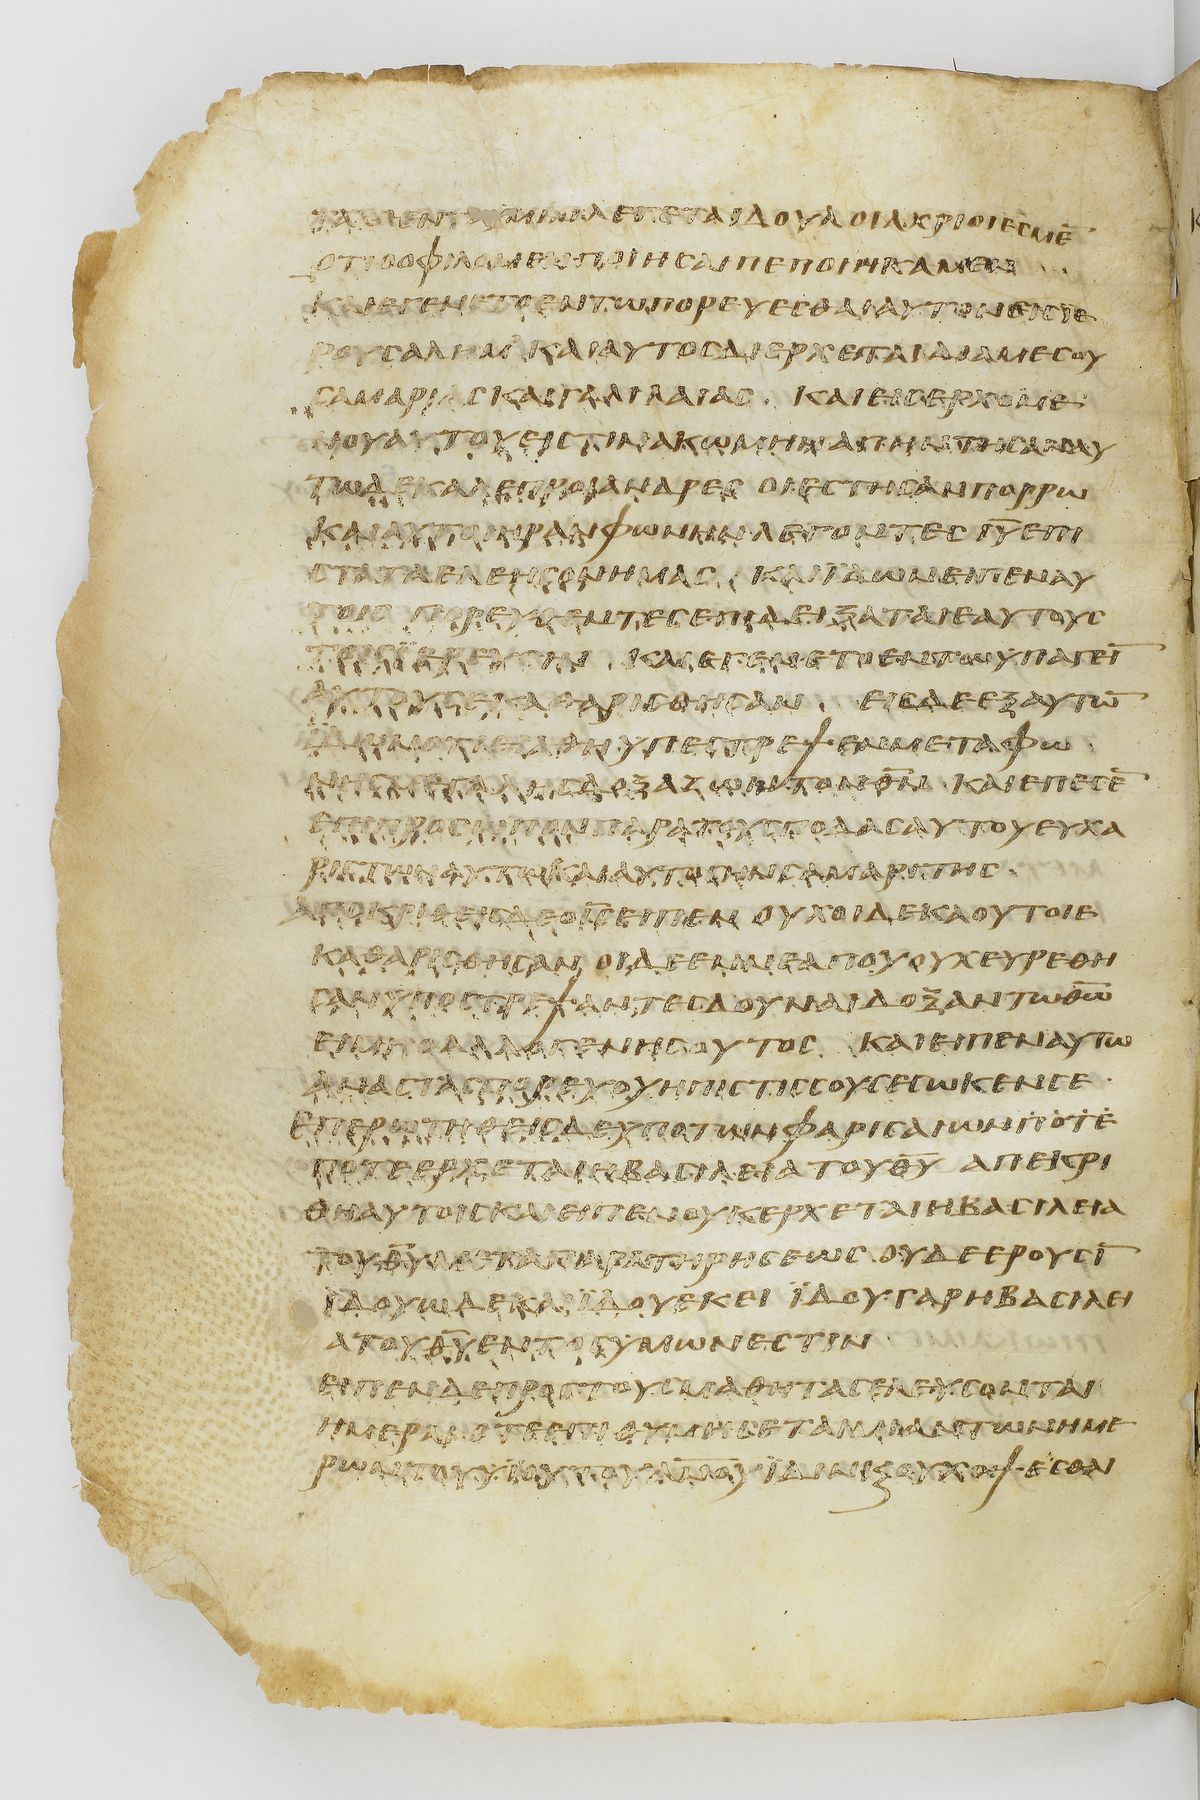 ΤΑΧΘΕΝΤΑΥΜΙΝΛΕΓΕΤΑΙΔΟΥΛΟΙΑΧΡΙΟΙΕϹΜΕ̅
ΟΤΙΟΟΦΙΛΟΜΕΝΠΟΙΗϹΑΙΠΕΠΟΙΗΚΑΜΕΝ
ΚΑΙΕΓΕΝΕΤΟΕΝΤΩΠΟΡΕΥΕϹΘΑΙΑΥΤΟΝΕΙϹΙΕ
ΡΟΥϹΑΛΗΜΚΑΙΑΥΤΟϹΔΙΕΡΧΕΤΑΙΔΙΑΜΕϹΟΥ
ϹΑΜΑΡΙΑϹΚΑΙΓΑΛΙΛΑΙΑϹ ΚΑΙΕΙϹΕΡΧΟΜΕ
ΝΟΥΑΥΤΟΥΕΙϹΤΙΝΑΚΩΜΗΝΑΠΗΝΤΗϹΑΝΑΥ
ΤΩΔΕΚΑΛΕΠΡΟΙΑΝΔΡΕϹ ΟΙΕϹΤΗϹΑΝΠΟΡΡΩ
ΚΑΙΑΥΤΟΙΗΡΑΝΦΩΝΗΝΛΕΓΟΝΤΕϹ Ι̅Υ̅ΕΠΙ
ϹΤΑΤΑΕΛΕΗϹΟΝΗΜΑϹ ΚΑΙΙΔΩΝΕΙΠΕΝΑΥ
ΤΟΙϹ ΠΟΡΕΥΘΕΝΤΕϹΕΠΙΔΕΙΞΑΤΑΙΕΑΥΤΟΥϹ
ΤΟΙϹΙΕΡΕΥϹΙΝ ΚΑΙΕΓΕΝΕΤΟΕΝΤΩΥΠΑΓΕΙ̅
ΑΥΤΟΥϹΕΚΑΘΑΡΙϹΘΗϹΑΝ ΕΙϹΔΕΕΞΑΥΤΩ̅
ΙΔΩΝΟΤΙΕΙΑΘΗΥΠΕϹΤΡΕΨΕΝΜΕΤΑΦΩ
ΝΗϹΜΕΓΑΛΗϹΔΟΞΑΖΩΝΤΟΝΘ̅Ν̅ ΚΑΙΕΠΕϹΕ̅
ΕΠΙΠΡΟϹΩΠΟΝΠΑΡΑΤΟΥϹΠΟΔΑϹΑΥΤΟΥΕΥΧΑ
ΡΙϹΤΩΝΑΥΤΩΚΑΙΑΥΤΟϹΗΝϹΑΜΑΡΙΤΗϹ
ΑΠΟΚΡΙΘΕΙϹΔΕΟΙ̅Ϲ̅ΕΙΠΕΝΟΥΧΟΙΔΕΚΑΟΥΤΟΙΕ
ΚΑΘΑΡΙϹΘΗϹΑΝΟΙΔΕΕΝΝΕΑΠΟΥΟΥΧΕΥΡΕΘΗ
ϹΑΝΥΠΟϹΤΡΕΨΑΝΤΕϹΔΟΥΝΑΙΔΟΞΑΝΤΩΘ̅Ω̅
ΕΙΜΗΟΑΛΛΟΓΕΝΗϹΟΥΤΟϹ ΚΑΙΕΙΠΕΝΑΥΤΩ
ΑΝΑϹΤΑϹΠΟΡΕΥΟΥΗΠΙϹΤΙϹϹΟΥϹΕϹΩΚΕΝϹΕ
ΕΠΕΡΩΤΗΘΕΙϹΔΕΥΠΟΤΩΝΦΑΡΙϹΑΙΩΝΠΟΤΕ
ΠΟΤΕΕΡΧΕΤΑΙΗΒΑϹΙΛΕΙΑΤΟΥΘ̅Υ̅ ΑΠΕΚΡΙ
ΘΗΑΥΤΟΙϹΚΑΙΕΙΠΕΝΟΥΚΕΡΧΕΤΑΙΗΒΑϹΙΛΕΙΑ
ΤΟΥΘ̅Υ̅ΜΕΤΑΠΑΡΑΤΗΡΗϹΕΩϹ ΟΥΔΕΕΡΟΥϹΙ̅
ΙΔΟΥΩΔΕΚΑΙΙΔΟΥΕΚΕΙ ΙΔΟΥΓΑΡΗΒΑϹΙΛΕΙ
ΑΤΟΥΘ̅Υ̅ΕΝΤΟϹΥΜΩΝΕϹΤΙΝ
ΕΙΠΕΝΔΕΠΡΟϹΤΟΥϹΜΑΘΗΤΑϹΕΛΕΥϹΟΝΤΑΙ
ΗΜΕΡΑΙΟΤΕΕΠΙΘΥΜΗϹΕΤΑΙΜΙΑΝΤΩΝΗΜΕ
ΡΩΝΤΟΥΥ̅Υ̅ΤΟΥΑ̅Ν̅Ο̅Υ̅ΙΔΕΙΝΚΑΙΟΥΚΟΨΕϹΘΑΙ